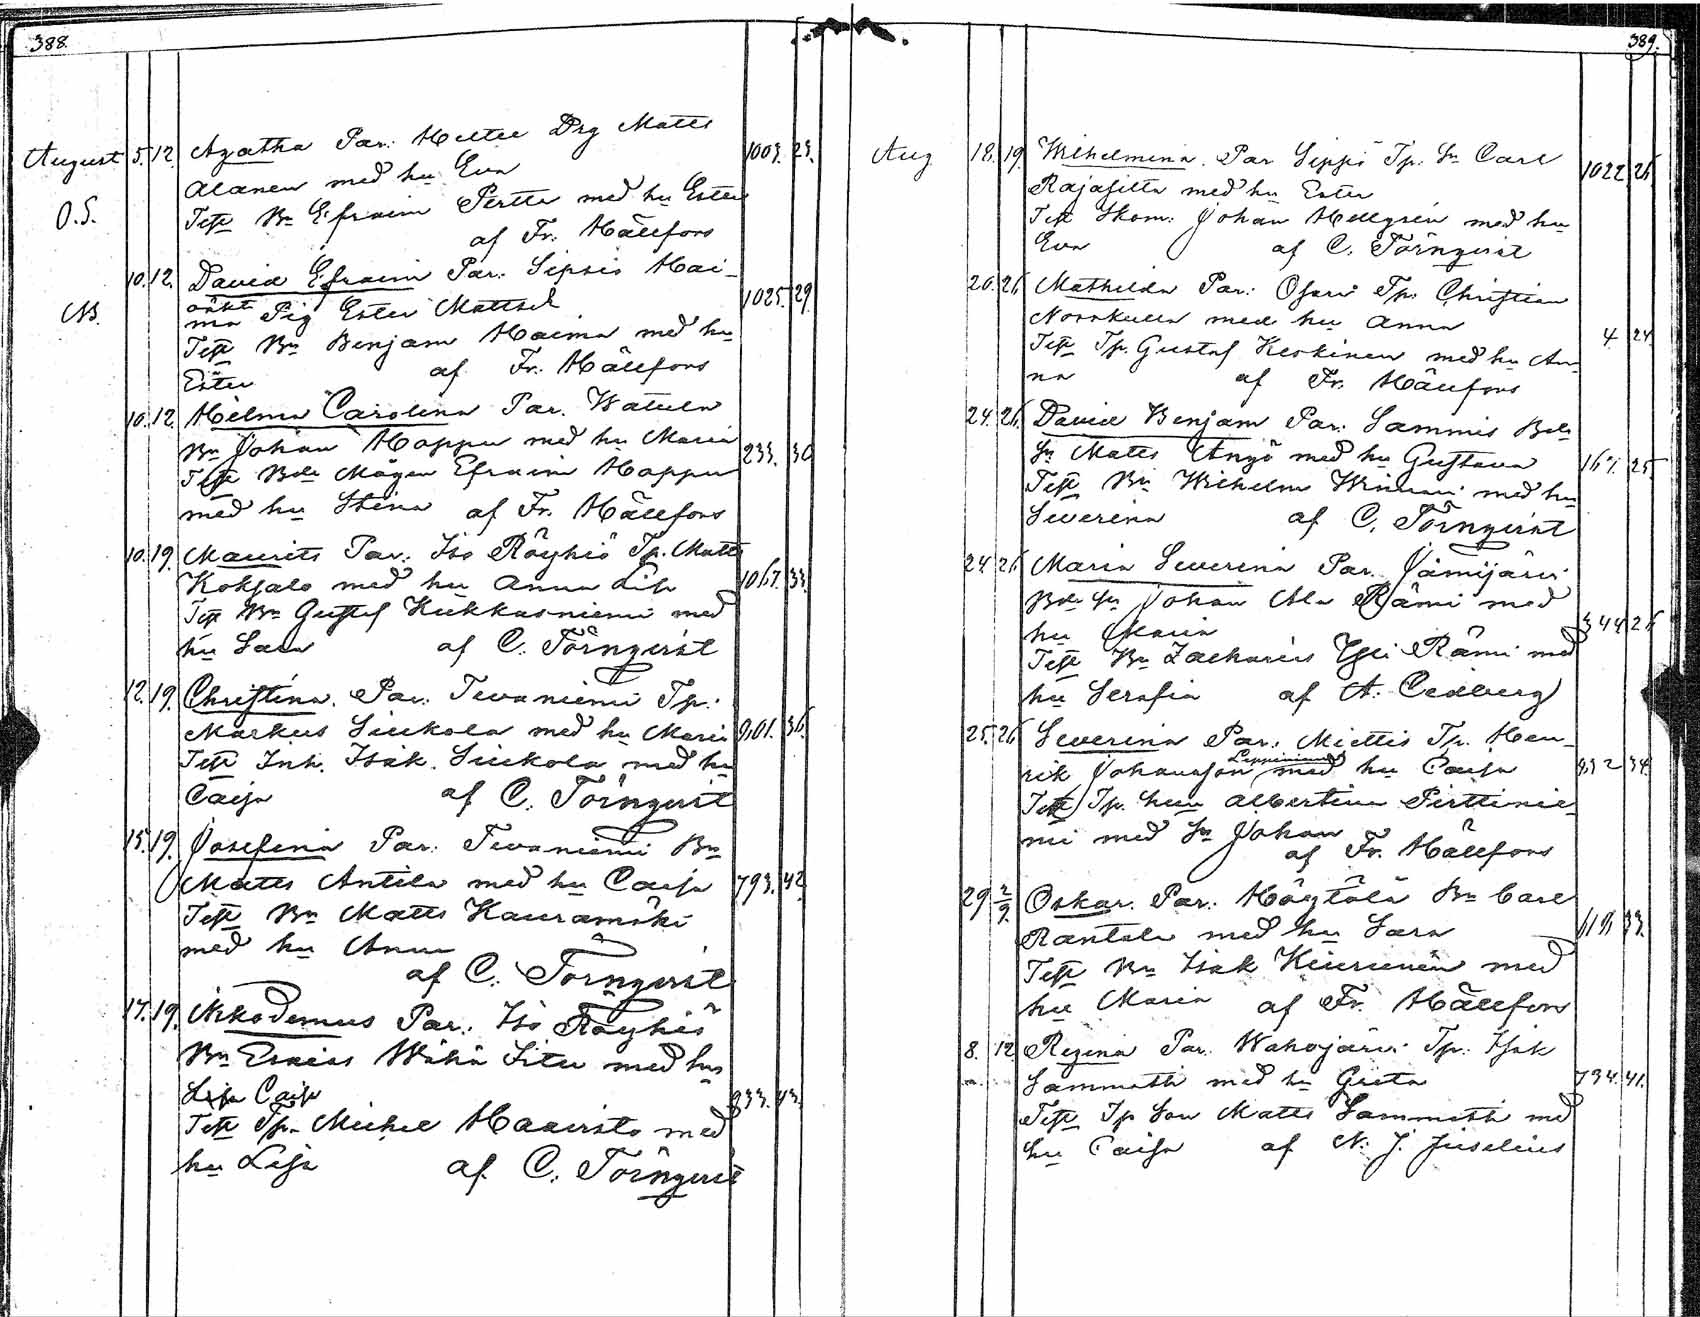 388.
August 5. 12. Agatha Par: Mettee Drg Matts 1003. 23.
Alanen med hu Eva
O.S.
Test Bn Efraim Pertte med hu Ester
af Fr. Hällfors
10. 12. David Efraim Par: Sipsis Hai-
oäkt 1025. 29.
ma Pig Ester Mattsd
NB.
Test Bn Benjam Haima med hu
Ester af Fr. Hällfors
10. 12. Hilma Carolina Par. Watula
Bn Johan Hoppu med hu Maria 233. 30
Test Bde Mågen Efraim Hoppu
med hu Stina af Fr. Hällfors
10. 19. Maurits Par: Iso Röyhiö Tp. Matts
Koksalo med hu Anna Lisa 1067. 33.
Test Bn Gustaf Kukkasniemi med
hu Sara af C. Törnqvist
12. 19. Christina. Par: Tevaniemi Tp.
Markus Siukola med hu Maria 901. 36.
Test Inh. Isak Siukola med hu
Caisa af C. Törnqvist
15. 19. Josefina Par: Tevaniemi Bn
Matts Antila med hu Caisa 793. 42
Test Bn Matts Kauramäki
med hu Anna
af C. Törnqvist
17. 19. Nikodemus Par: Iso Röyhiö
Bn Esaias Wähä Sitee med hu
Lisa Caisa 933. 43.
Test Tp. Michel Haavisto med
hu Lisa af C. Törnqvist
389.
Aug 18. 19. Wilhelmina. Par Seppi Tp. Sn Carl 1022. 26.
Rajasilta med hu Ester
Test Skom: Johan Hellgrén med hu
Eva af C. Törnqvist
20. 26. Mathilda Par: Osara Tp. Christian
Norrkulla med hu Anna 4 24.
Test Tp. Gustaf Keskinen med hu An-
na af Fr. Hällfors
24. 26. David Benjam Par: Sammis Bde
Sn Matts Ängö med hu Gustava 167. 25
Test Bn Wilhelm Winkari med hu
Severina af C. Törnqvist
24. 26 Maria Severina Par. Jämijärvi
Bde Sn Johan Ala Rämi med
hu Maria 344 26
Test Bn Zacharias Yli Rämi med
hu Serafia af A. Cedberg
25. 26 Severina Par: Miettis Tp. Hen-
Leppiniemi
rik Johansson med hu Caisa 932 34.
Test Tp. hun Albertina Perttinie-
mi med Sn Johan
af Fr. Hällfors
29 2/9. Oskar. Par: Höytölä Bn Carl
Rantala med hu Sara 616 33.
Test Bn Isak Keisuien med
hu Maria af Fr. Hällfors
8. 12 Regina Par: Wahojärvi Tp. Isak
Sammatti med hu Greta 734. 41.
Test Tp Son Matts Sammatti med
hu Caisa af N. J. Juselius